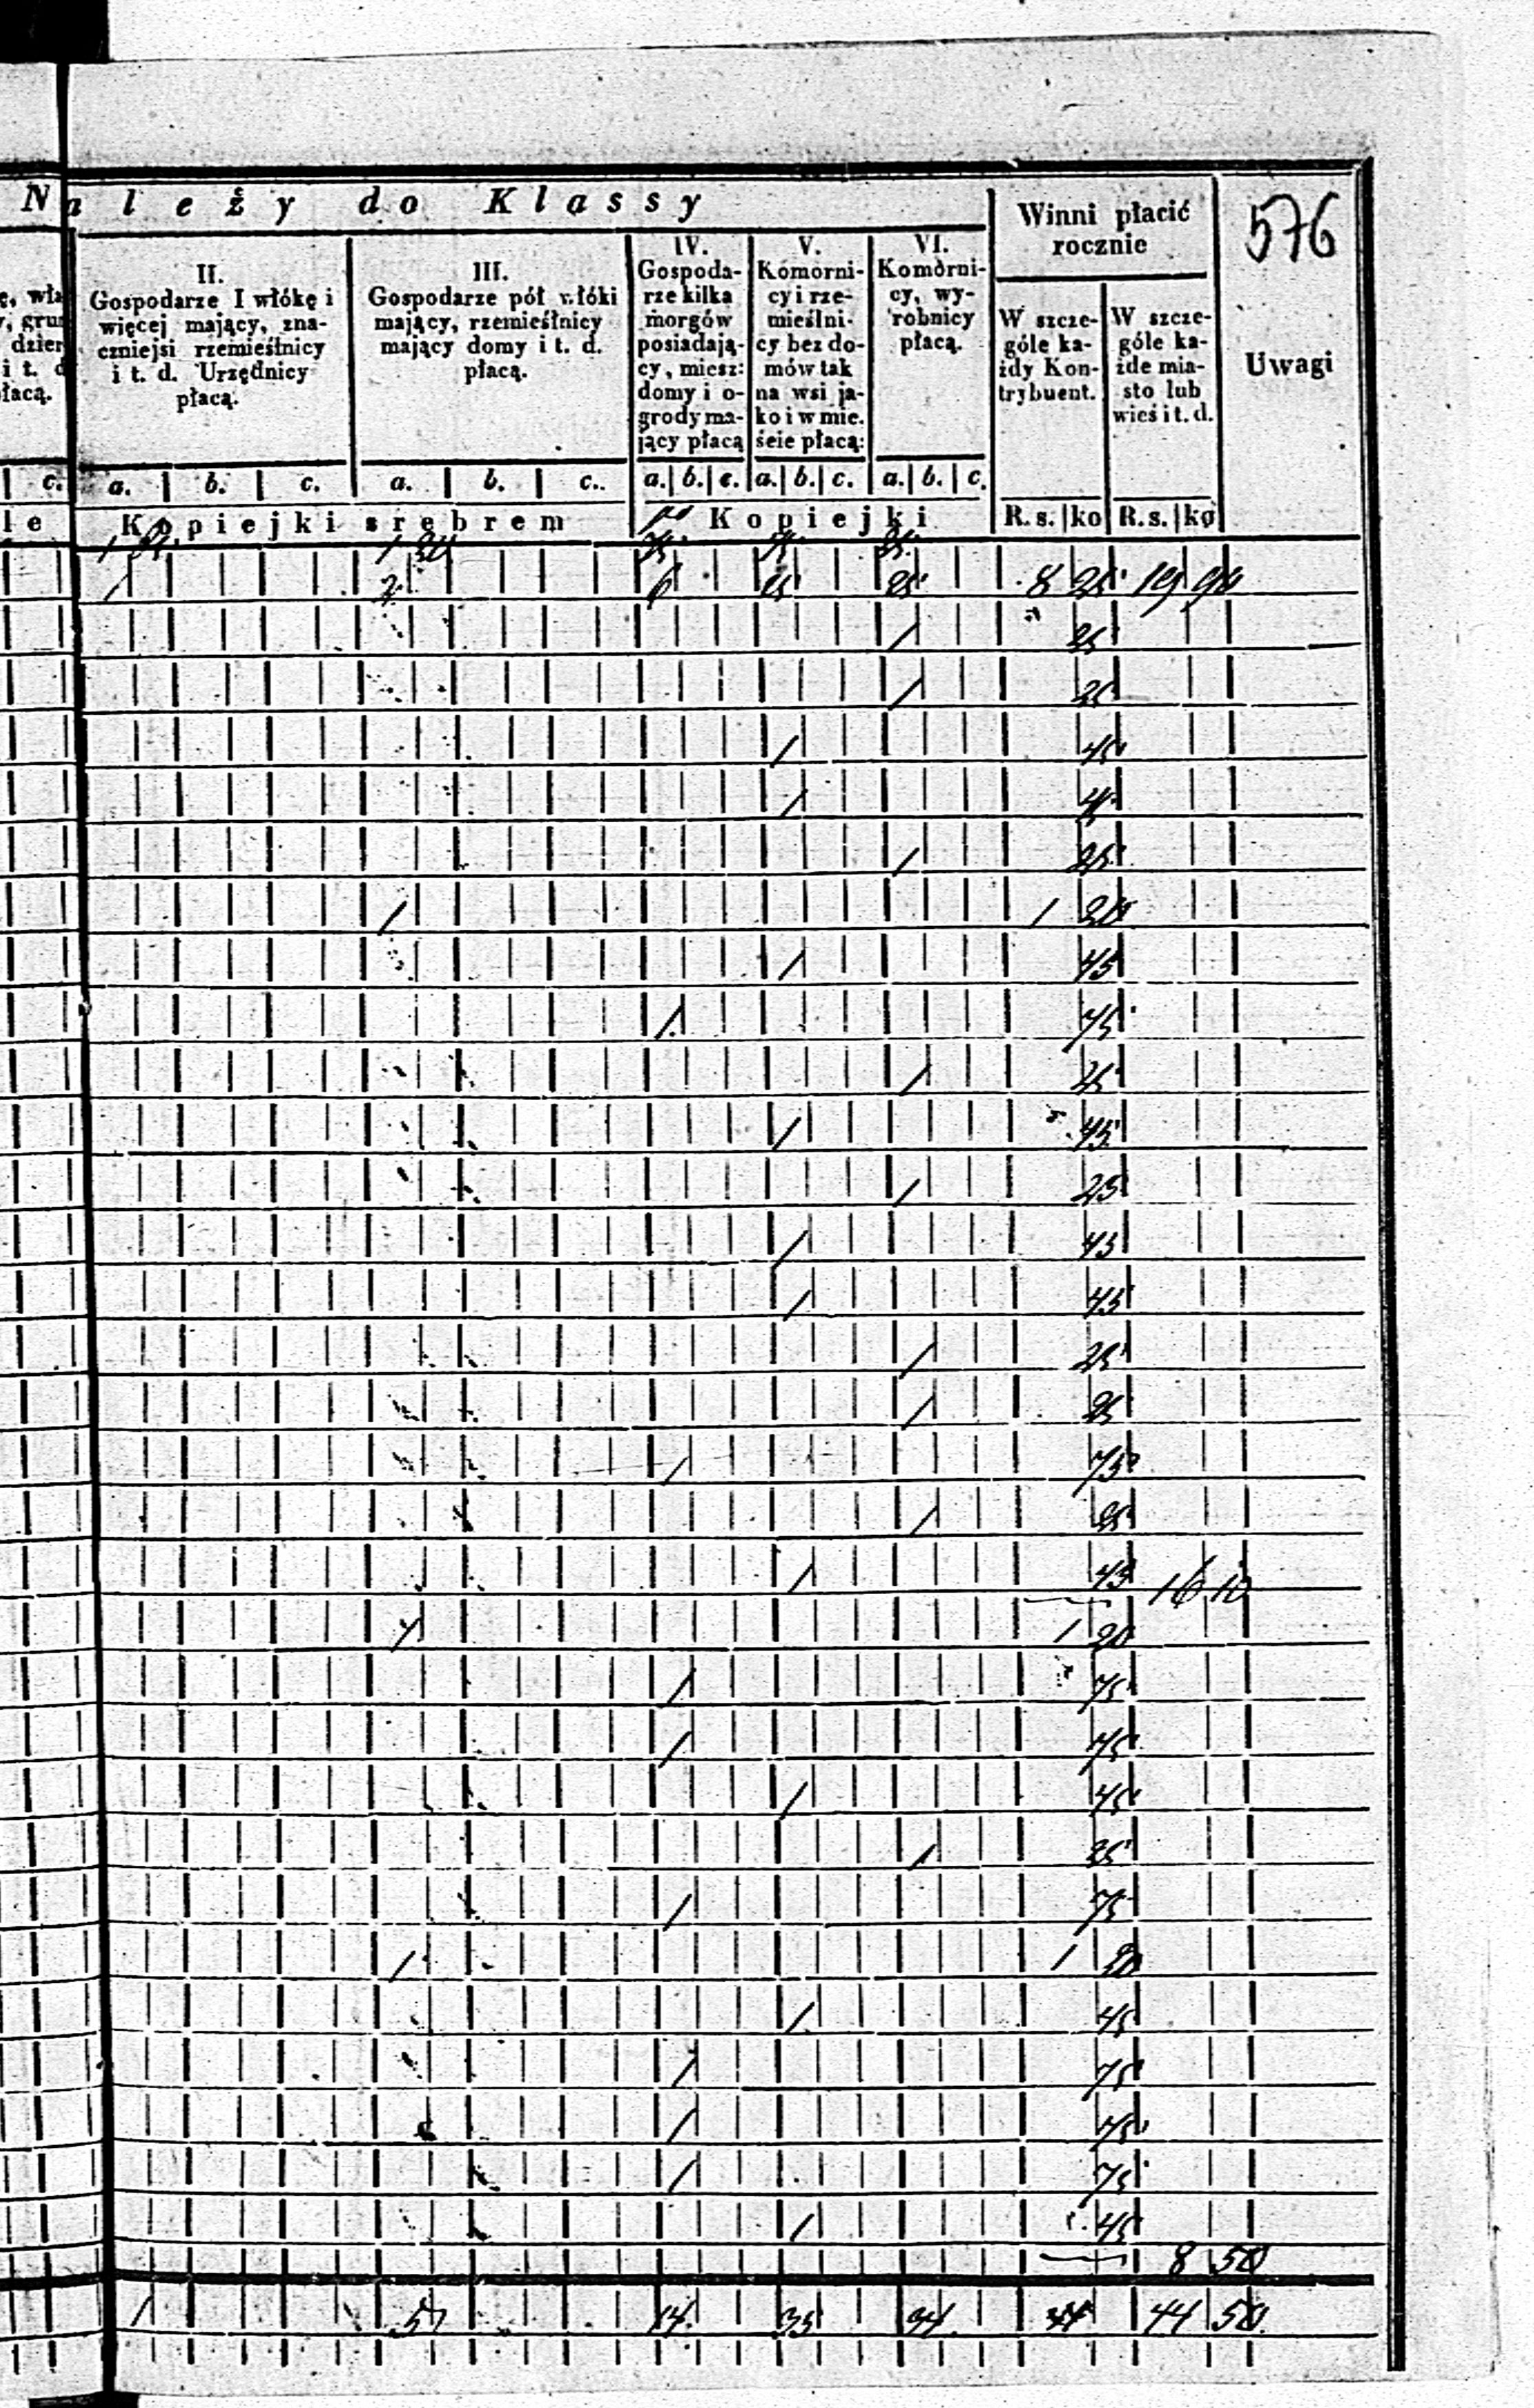 N a l e ż y d o K l a s s y
Winni płacić
rocznie
576
II.
Gospodarze I włókę i
więcej mający, zna-
czniejsi rzemieślnicy
i t. d. Urzędnicy
płacą.
III.
Gospodarze pół włóki
mający, rzemieślnicy
mający domy i t. d.
płacą.
IV.
Gospoda-
rze kilka
morgów
posiadają-
cy, miesz:
domy i o-
grody ma-
jący płacą
V.
Komorni-
cy i rze-
mieślni-
cy bez do-
mów tak
na wsi ja-
ko i w mie.
ście płacą:
VI.
Komorni-
cy, wy-
robnicy
płacą.
W szcze-
góle ka-
żdy Kon-
trybuent.
W szcze-
góle ka-
żde mia-
sto lub
wieś i t. d.
Uwagi
c. a. b. c. a. b. c.. a. b. c. a. b. c. a. b. c.
l e K o p i e j k i s r e b r e m K o p i e j k i R. s. ko R. s. ko
1 2 6 8 25 19 90
1 25
1 25
1 45
1 45
1 25
1 1 20
1 45
1 75
1 25
1 45
1 25
1 45
1 45
1 25
1 25
1 75
1 25
1 45 16 10
1 1 20
1 75
1 75
1 45
1 25
1 75
1 1 20
1 45
1 75
1 75
1 75
1 45
8 50
1 14 35 34 44 50